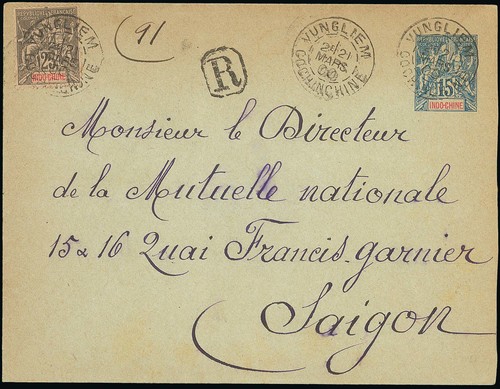 RÉPUBLIQUE FRANÇAISE
25
INDO-CHINE
91
R
VUNGLIEM
2E/21
MARS
00
COCHINCHINE
VUNGLIEM
15
INDO-CHINE
Monsieur le Directeur
de la Mutuelle nationale
15 & 16 Quai Francis-garnier
Saigon